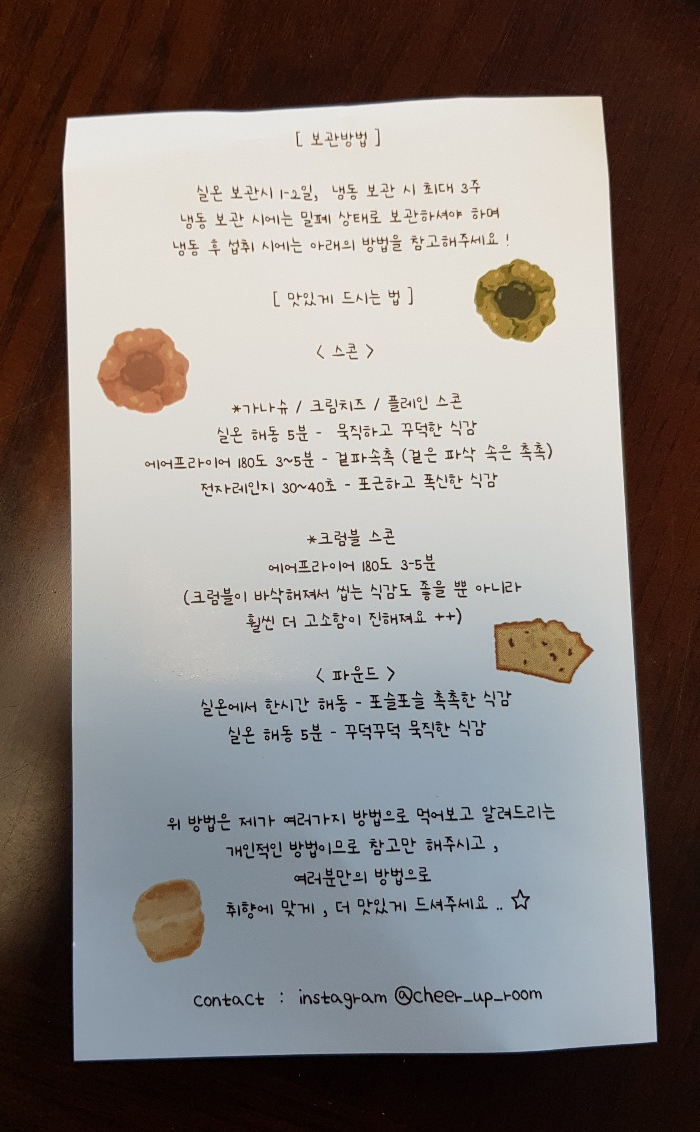 [ 보관방법 ]
실온 보관시 1-2일, 냉동 보관 시 최대 3주
냉동 보관 시에는 밀폐 상태로 보관하셔야 하며
냉동 후 섭취 시에는 아래의 방법을 참고해주세요 !
[ 맛있게 드시는 법 ]
< 스콘 >
*가나슈 / 크림치즈 / 플레인 스콘
실온 해동 5분 - 묵직하고 꾸덕한 식감
에어프라이어 180도 3~5분 - 겉파속촉 (겉은 파삭 속은 촉촉)
전자레인지 30~40초 - 포근하고 폭신한 식감
*크럼블 스콘
에어프라이어 180도 3-5분
(크럼블이 바삭해져서 씹는 식감도 좋을 뿐 아니라
훨씬 더 고소함이 진해져요 ++)
< 파운드 >
실온에서 한시간 해동 - 포슬포슬 촉촉한 식감
실온 해동 5분 - 꾸덕꾸덕 묵직한 식감
위 방법은 제가 여러가지 방법으로 먹어보고 알려드리는
개인적인 방법이므로 참고만 해주시고 ,
여러분만의 방법으로
취향에 맞게 , 더 맛있게 드셔주세요 .. ☆
contact : instagram @cheer_up_room